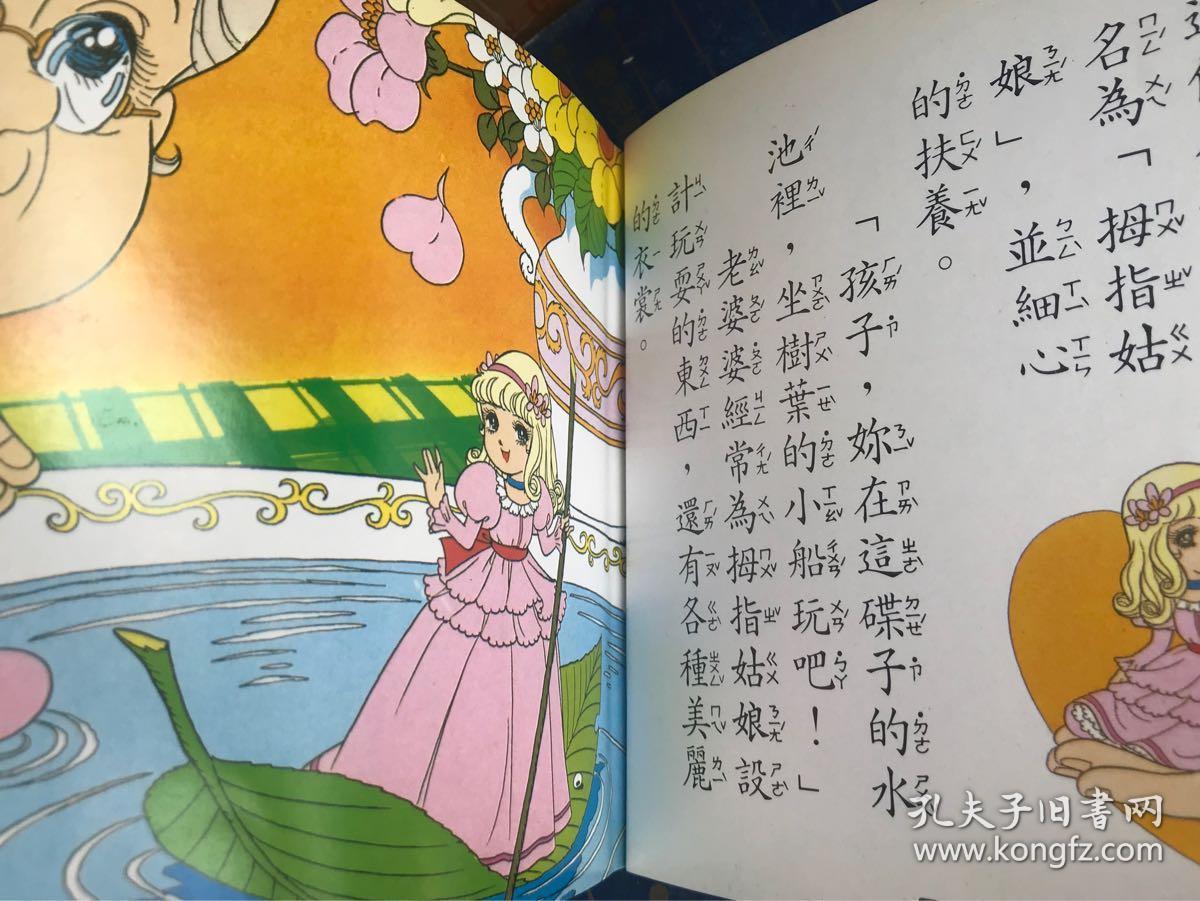 名為「拇指姑
娘」，並細心
的扶養。
「孩子，妳在這碟子的水
池裡，坐樹葉的小船玩吧！」
老婆婆經常為拇指姑娘設
計玩耍的東西，還有各種美麗
的衣裳。
孔夫子旧书网
www.kongfz.com